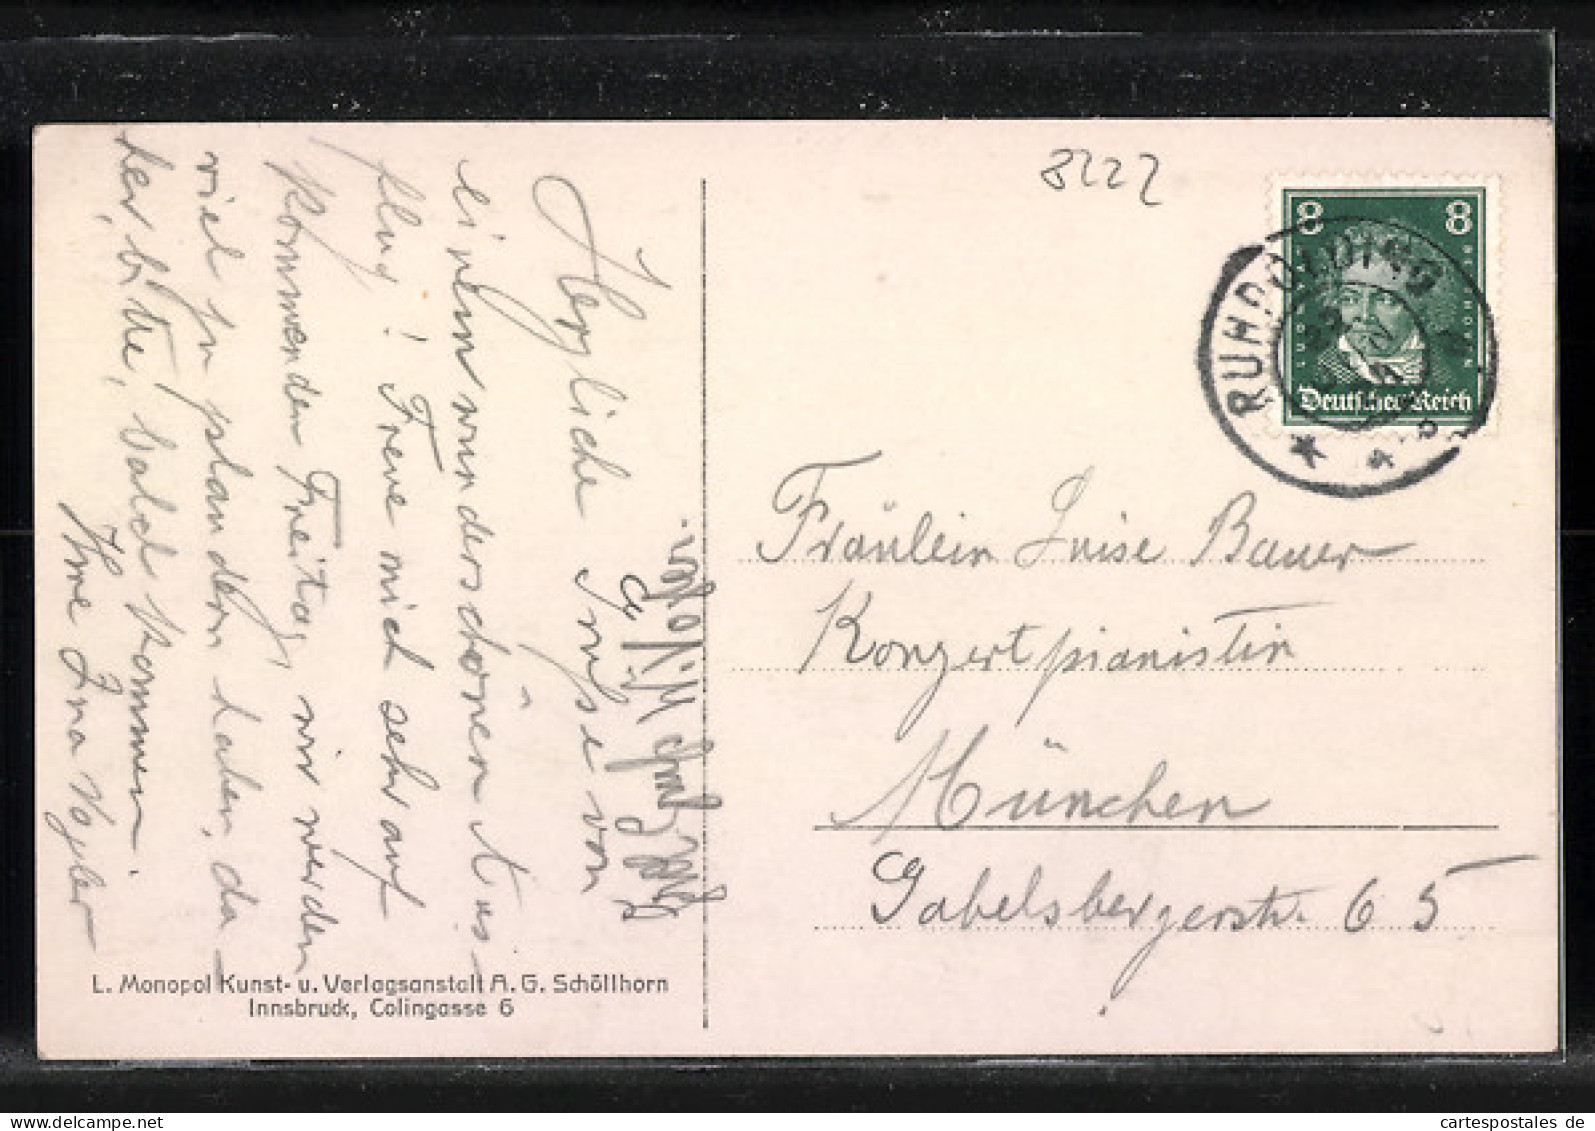 8222
8 8
Deutsches Reich
RUHPOLDING
Herzliche Grüße von
einem wunderschönen Aus-
flug! Freue mich sehr auf
kommenden Freitag, wir werden
viel zu plaudern haben, da-
her, bitte, bald kommen.
Ihre Ina Vogler
Fräulein Luise Bauer
Konzertpianistin
München
Gabelsbergerstr. 65
L. Monopol Kunst- u. Verlagsanstalt A. G. Schöllhorn
Innsbruck, Colingasse 6
cartespostales de